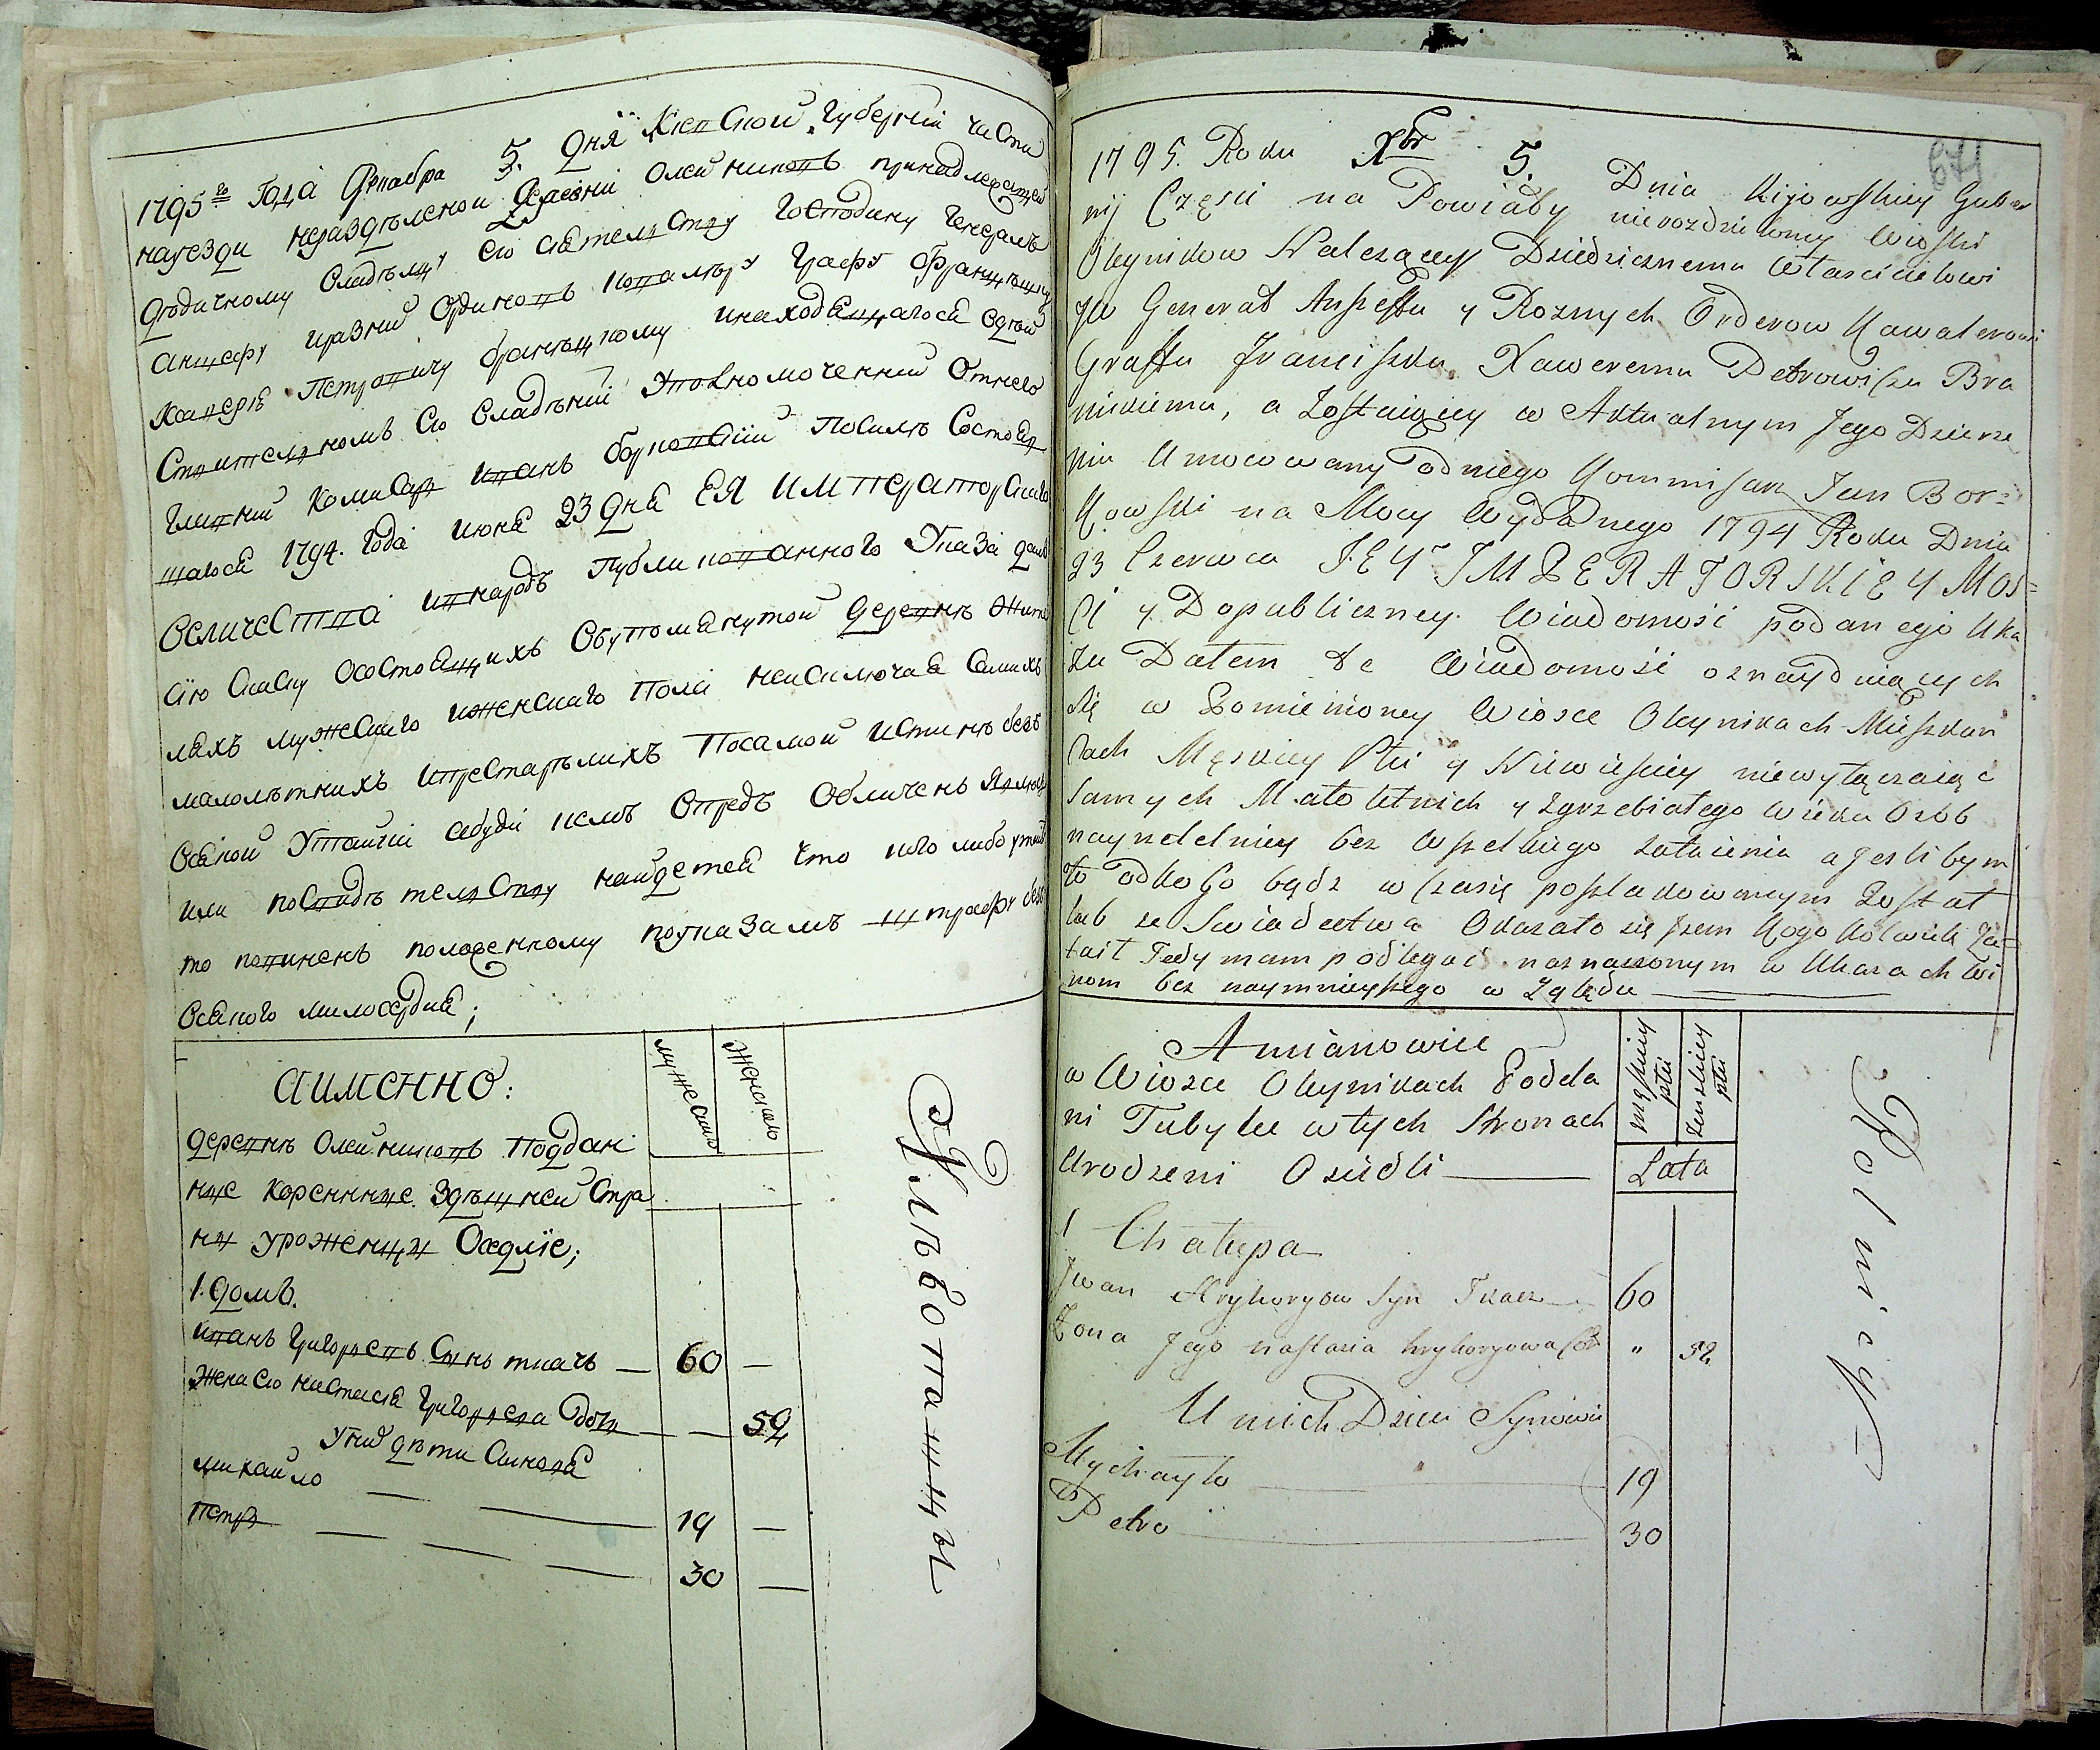 1795го Года Декабря 5. Дня Киевской Губернїи части
науезди неразделеной Деревни Олейниковъ принадлежащей
дедичному Владелцу его Сиятелству Господину Генералъ
Аншефу и разний Ординовъ Кавалеру Графу Францишку
Ксаверию Петровичу Браницкому инаходящагося вдей
ствителномъ его Владении Уполномоченний Отнего
Главний Комисар Иванъ Борковский посилѣ Состояв
шагося 1794. Года Июня 23 Дня ЕЯ ИМПЕРАТОРСкаго
Величества и внародъ Публикованного Указа даю
сїю Скаску Осостоящихъ Овупомянутой деревнѣ Жите
ляхъ мужескаго иженскаго Пола неисключая самихъ
малолѣтнихъ ипрестарѣлихъ Посамой Истинѣ безъ
Всякой Утайки абуди кемъ Впредъ Обличенъ Явлюсь
или посвидѣтелству найдется Что кого либо утаилъ
то повиненъ положенному поуказамъ штрафу безъ
Всякого милосердия;
АИМЕННО:
мужеска
женска
деревнѣ Олейниковъ Поддан
ние коренние здѣшней Стра
ни уроженци Оседлие;
1. домъ.
Иванъ Григориевъ Синъ ткачъ — 60 —
Жена его Настасия Григориева Дочь — — 52
Уних дѣти Синовя
Михайло — 19 —
Петръ — 30 —
Хлѣбопашцы
671
1795. Roku Xbr 5. Dnia Kijowskiey Guber
nij Części na Powiaty nierozdzieloney Wioski
Oleynikow Należącey Dziedzicznemu Właścicielowi
Jw Generał Anszeffu y Roznych Orderow Kawalerowi
Graffu Franciszku Xaweremu Petrowiczu Bra
nickiemu, a Zostaiącey w Aktualnym Jego Dzierże
niu Umocowany odniego Kommisarz Jan Bor=
kowski na Mocy Wydanego 1794 Roku Dnia
23 Czerwca JEY IMPERATORSKIEY MOŚ=
Ci y Dopubliczney Wiadomości podanego Uka
zu Datem te Wiadomość oznayduiących
się w Pomienioney Wiosce Oleynikach Mieszkań
cach Męskiey Płci y Niewieskiey niewyłączaiąc
samych Małoletnich y zgrzebiałego Wieku Osob
nayrzetelniey bez wszelkiego zataienia a Jeslibym
to odkogo bądz w czasię poszlakowanym został
lub ze Swiadectwa Okazało się żem kogo kolwiek Za=
taił Tedy mam podlegać naznaczonym w Ukazach Wi
nom bez naymnieyszego wZględu
Amianowice
w Wiosce Oleynikach Podda
ni Tubylce wtych Stronach
Urodzeni Osiedli
męskiey płci
żenskiey płci
Lata
1 Chałupa
Jwan Hryhoryow Syn Tkacz 60
Zona Jego Nastazia hryhorowa Cor " 52
U nich Dzieci Synowie
Mychayło 19
Petro 30
Rolnicy